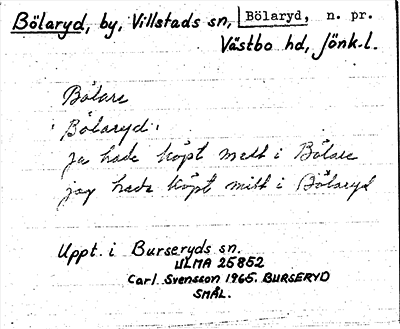 Bölaryd, by, Villstads sn, Bölaryd, n. pr.
Västbo hd, Jönk.l.
Bölare
'Bölaryd'
ja hade köpt mett i Bölare
jag hade köpt mitt i Bölaryd
Uppt. i Burseryds sn.
ULMA 25852
Carl Svensson 1965. BURSERYD
SMÅL.